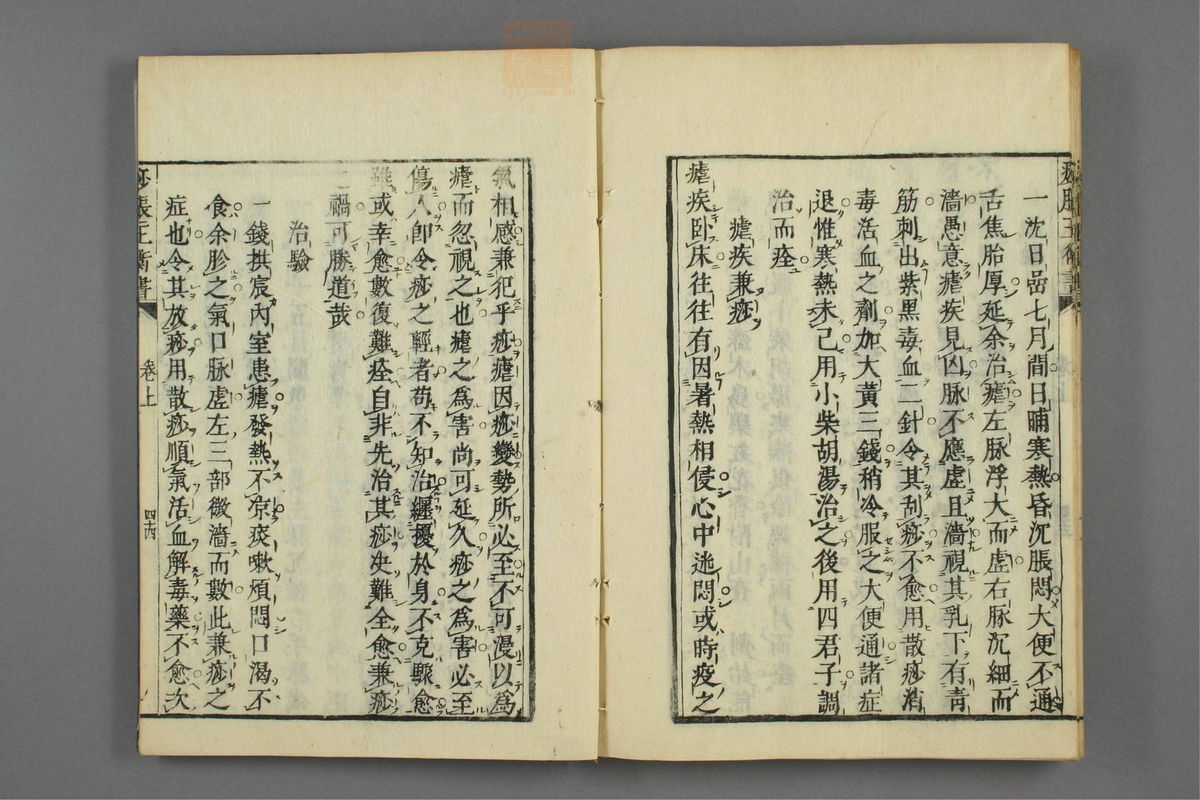 痧脹玉衡書
一沈日嵒七月間日晡寒熱昏沉脹悶大便不通
舌焦胎厚延余治瘧左脉浮大而虛右脉沉細而
濇愚意瘧疾見凶脉不應虛且濇視其乳下有青
筋刺出紫黑毒血二針令其刮痧不愈用散痧消
毒活血之劑加大黃三錢稍冷服之大便通諸症
退惟寒熱未已用小柴胡湯治之後用四君子調
治而痊
瘧疾兼痧
瘧疾卧床往往有因暑熱相侵心中迷悶或時疫之
氣相感兼犯乎痧瘧因痧變勢所必至不可漫以爲
瘧而忽視之也瘧之爲害尚可延久痧之爲害必至
傷人卽令痧之輕者苟不知治纏擾於身不克驟愈
雖或幸愈數復難痊自非先治其痧决難全愈兼痧
之禍可勝道哉
治驗
一錢拱宸內室患瘧發熱不凉痰嗽煩悶口渴不
食余胗之氣口脉虛左三部微濇而數此兼痧之
症也令其放痧用散痧順氣活血解毒藥不愈次
痧脹玉衡書
卷上
四六